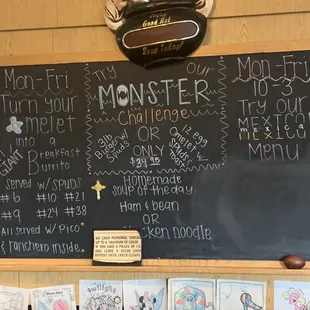 Good Hot
Soup Today!
Mon-Fri
Turn your
melet
into a
GIANT
Breakfast
Burrito
Served w/ SPUDS
#6 #10 #21
#9 #24 #38
All served w/ Pico
& ranchero inside
Try our
MONSTER
Challenge
Burger w/
Spuds
OR
12 egg
Omelet w/
Spuds
ONLY
$29.95
Homemade
Soup of the day
Ham & bean
OR
cken noodle
Mon-Fri
10-3
Try our
MEXICO
MEXICO
Menu